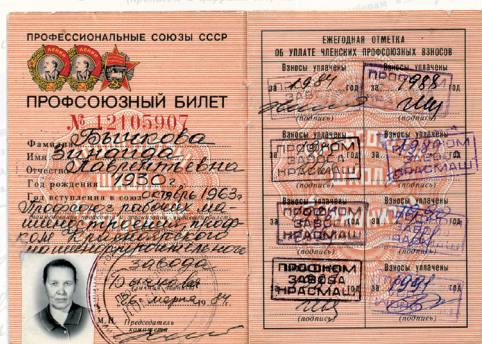 ПРОФЕССИОНАЛЬНЫЕ СОЮЗЫ СССР
ПРОФСОЮЗНЫЙ БИЛЕТ
№ 12105907
Фамилия Бычкова
Имя Зинаида
Отчество Лаврентьевна
Год рождения 1930 г.
Год вступления в союз октябрь 1963г
Профсоюз
машиностроения, проф-
ком
завода
Бычкова
26 марта 1984
М.П. Председатель
комитета
ЕЖЕГОДНАЯ ОТМЕТКА
ОБ УПЛАТЕ ЧЛЕНСКИХ ПРОФСОЮЗНЫХ ВЗНОСОВ
Взносы уплачены
за 1984 год
(подпись)
Взносы уплачены
за 1988 год
(подпись)
Взносы уплачены
ПРОФКОМ
ЗАВОДА
КРАСМАШ
(подпись)
Взносы уплачены
за 1989 год
(подпись)
Взносы уплачены
ПРОФКОМ
ЗАВОДА
КРАСМАШ
(подпись)
Взносы уплачены
за 1990 год
(подпись)
Взносы уплачены
ПРОФКОМ
ЗАВОДА
КРАСМАШ
(подпись)
Взносы уплачены
за 1991 год
(подпись)